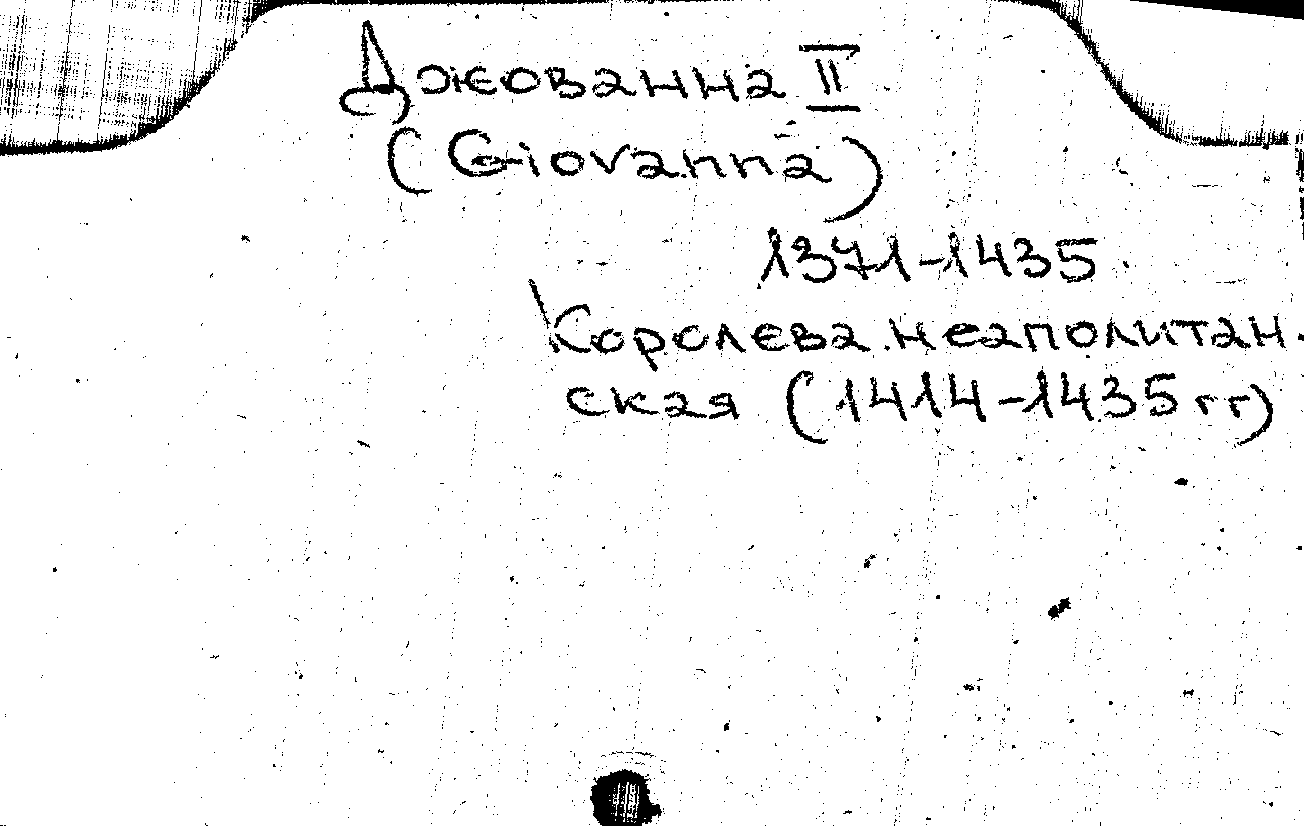 Джованна II
(Giovanna)
1371-1435.
Королева неаполитан-
ская (1414-1435 гг)